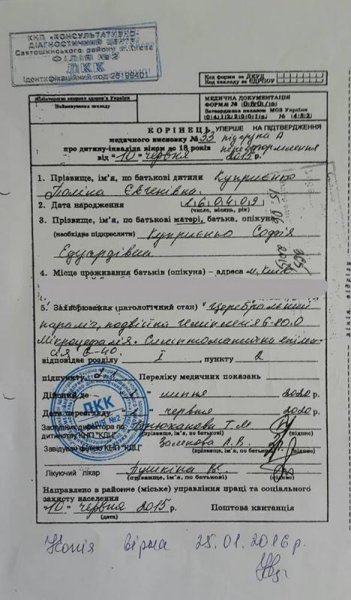 КНП «КОНСУЛЬТАТИВНО-
ДІАГНОСТИЧНИЙ ЦЕНТР»
Святошинського району м. Києва
ФІЛІЯ №2
ЛКК
Ідентифікаційний код 26199401
Код форми за ДКУД
Код закладу за ЄДРПОУ
Міністерство охорони здоров'я України
Найменування закладу
МЕДИЧНА ДОКУМЕНТАЦІЯ
ФОРМА №
Затверджена наказом МОЗ України
КОРІНЕЦЬ УПЕРШЕ НА ПІДТВЕРДЖЕННЯ
медичного висновку № 33 підгрупа А
про дитину-інваліда віком до 18 років
від "10" червня 2015 р.
1. Прізвище, ім'я, по батькові дитини Купрієнко
Поліна Євгенівна
2. Дата народження
(число, місяць, рік)
3. Прізвище, ім'я, по батькові матері, батька, опікуна
(необхідне підкреслити) Купрієнко Софія
Едуардівна
4. Місце проживання батьків (опікуна) – адреса м. Київ
5. Захворювання (патологічний стан) Церебральний
параліч, подвійна геміплегія G-80.0
Мікроцефалія. Симптоматична
G-40.
відповідає розділу I пункту 2
підпункту Переліку медичних показань
Дійсний до липня 2020
Дата перегляду червня 2020
Заступник директора по
дитинству КНП "КДЦ" Т.М.
(прізвище, ім'я, по батькові) (підпис)
Завідувач філією КНП "КДЦ" Л.В.
(прізвище, ім'я, по батькові) (підпис)
ЛКК
№2
Лікуючий лікар Пушкіна
(прізвище, ім'я, по батькові)
Направлено в районне (міське) управління праці та соціального
захисту населення
"10" червня 2015 р. Поштова квитанція
(дата)
Копія вірна 25.01.2016 р.